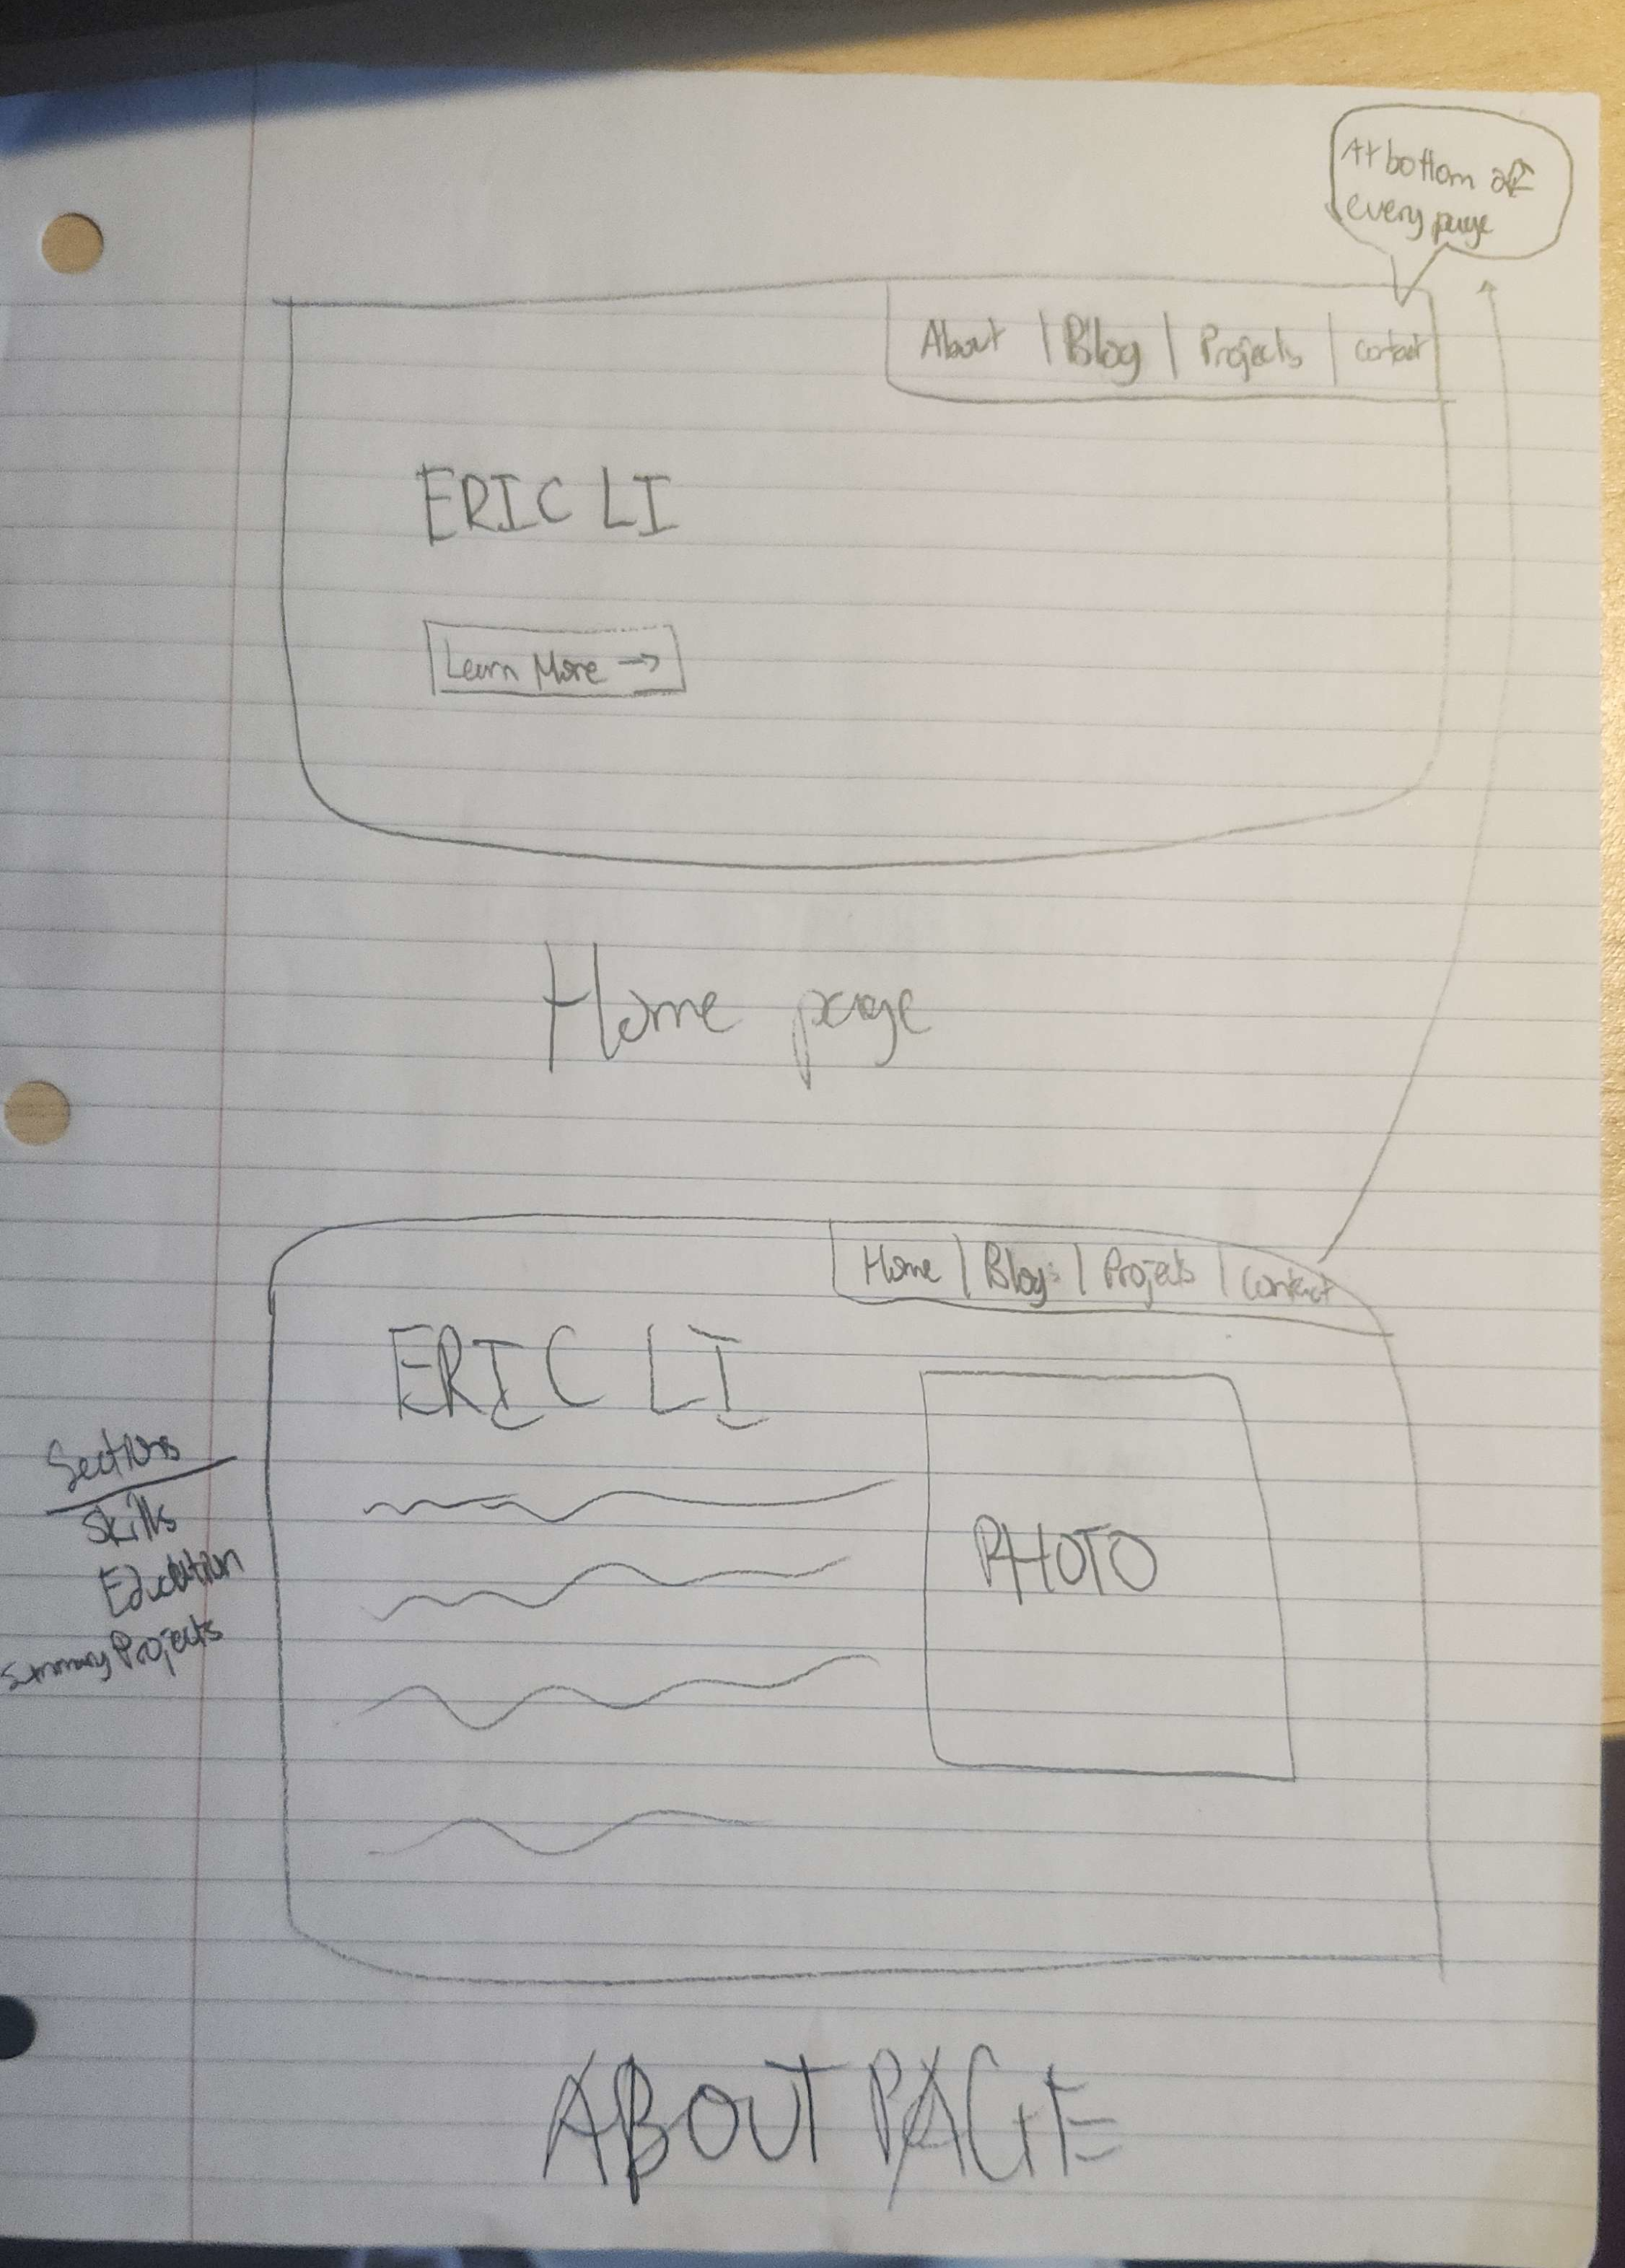 At bottom of
every page
About | Blog | Projects | Contact
ERIC LI
Learn More →
Home page
Home | Blogs | Projects | Contact
ERIC LI
PHOTO
Sections
Skills
Education
Summary Projects
ABOUT PAGE